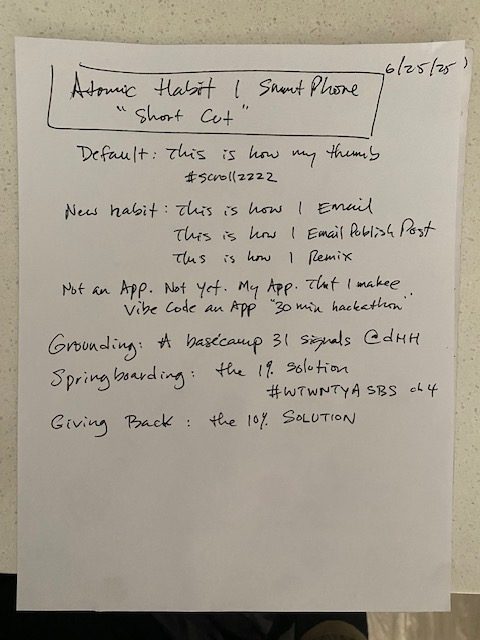 6/25/25
Atomic Habit | Smart Phone
"Short Cut"
Default: This is how my thumb
#scrollzzzz
New habit: This is how I Email
This is how I Email Publish Post
This is how I Remix
Not an App. Not Yet. My App. That I makee
Vibe Code an App "30 min hackathon"
Grounding: A basecamp 31 signals @dHH
Springboarding: the 1% solution
#WTWNTYASBS ch4
Giving Back: the 10% SOLUTION